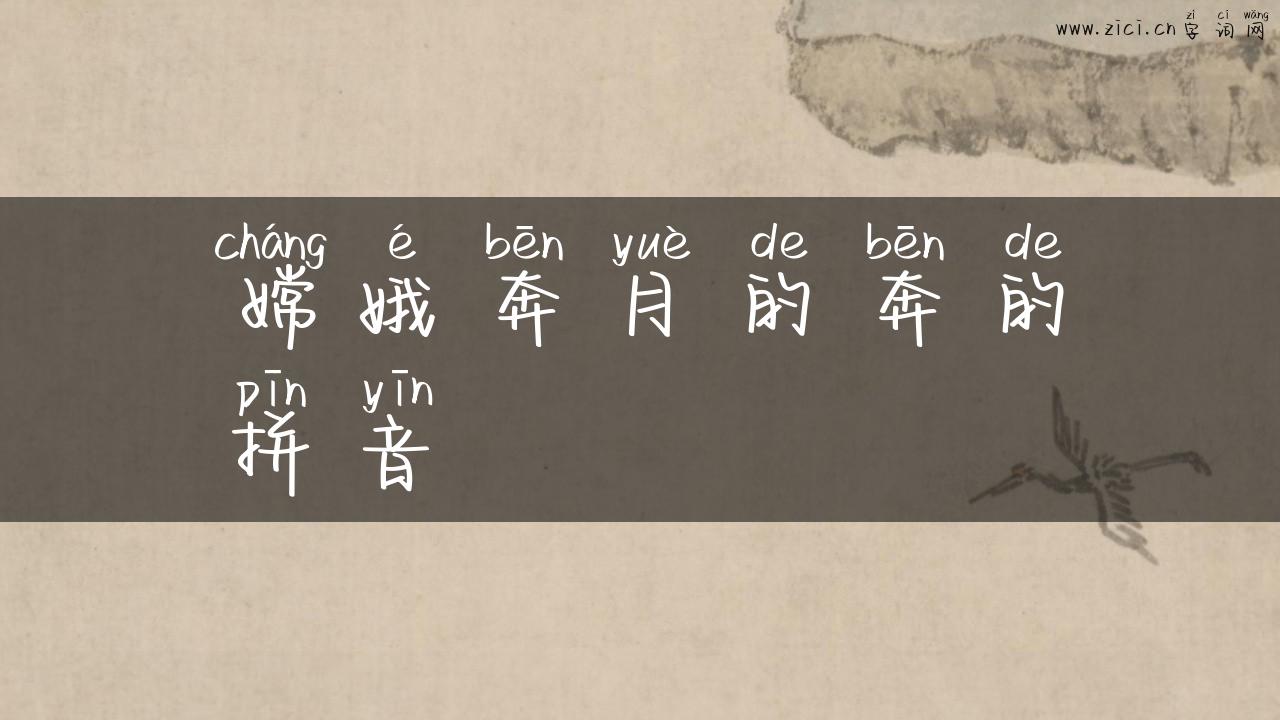 zì cí wǎng
www.zici.cn 字词网
cháng é bēn yuè de bēn de
嫦娥奔月的奔的
pīn yīn
拼音